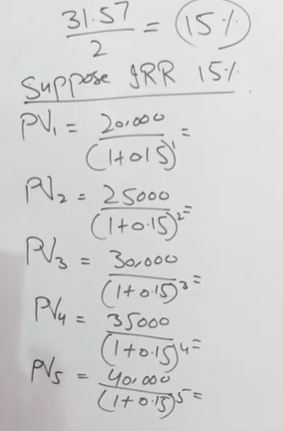 31.57 / 2 = 15%
Suppose IRR 15%.
PV1 = 20,000 / (1+015)^1 =
PV2 = 25000 / (1+0.15)^2 =
PV3 = 30,000 / (1+0.15)^3 =
PV4 = 35000 / (1+0.15)^4 =
PV5 = 40,000 / (1+0.15)^5 =